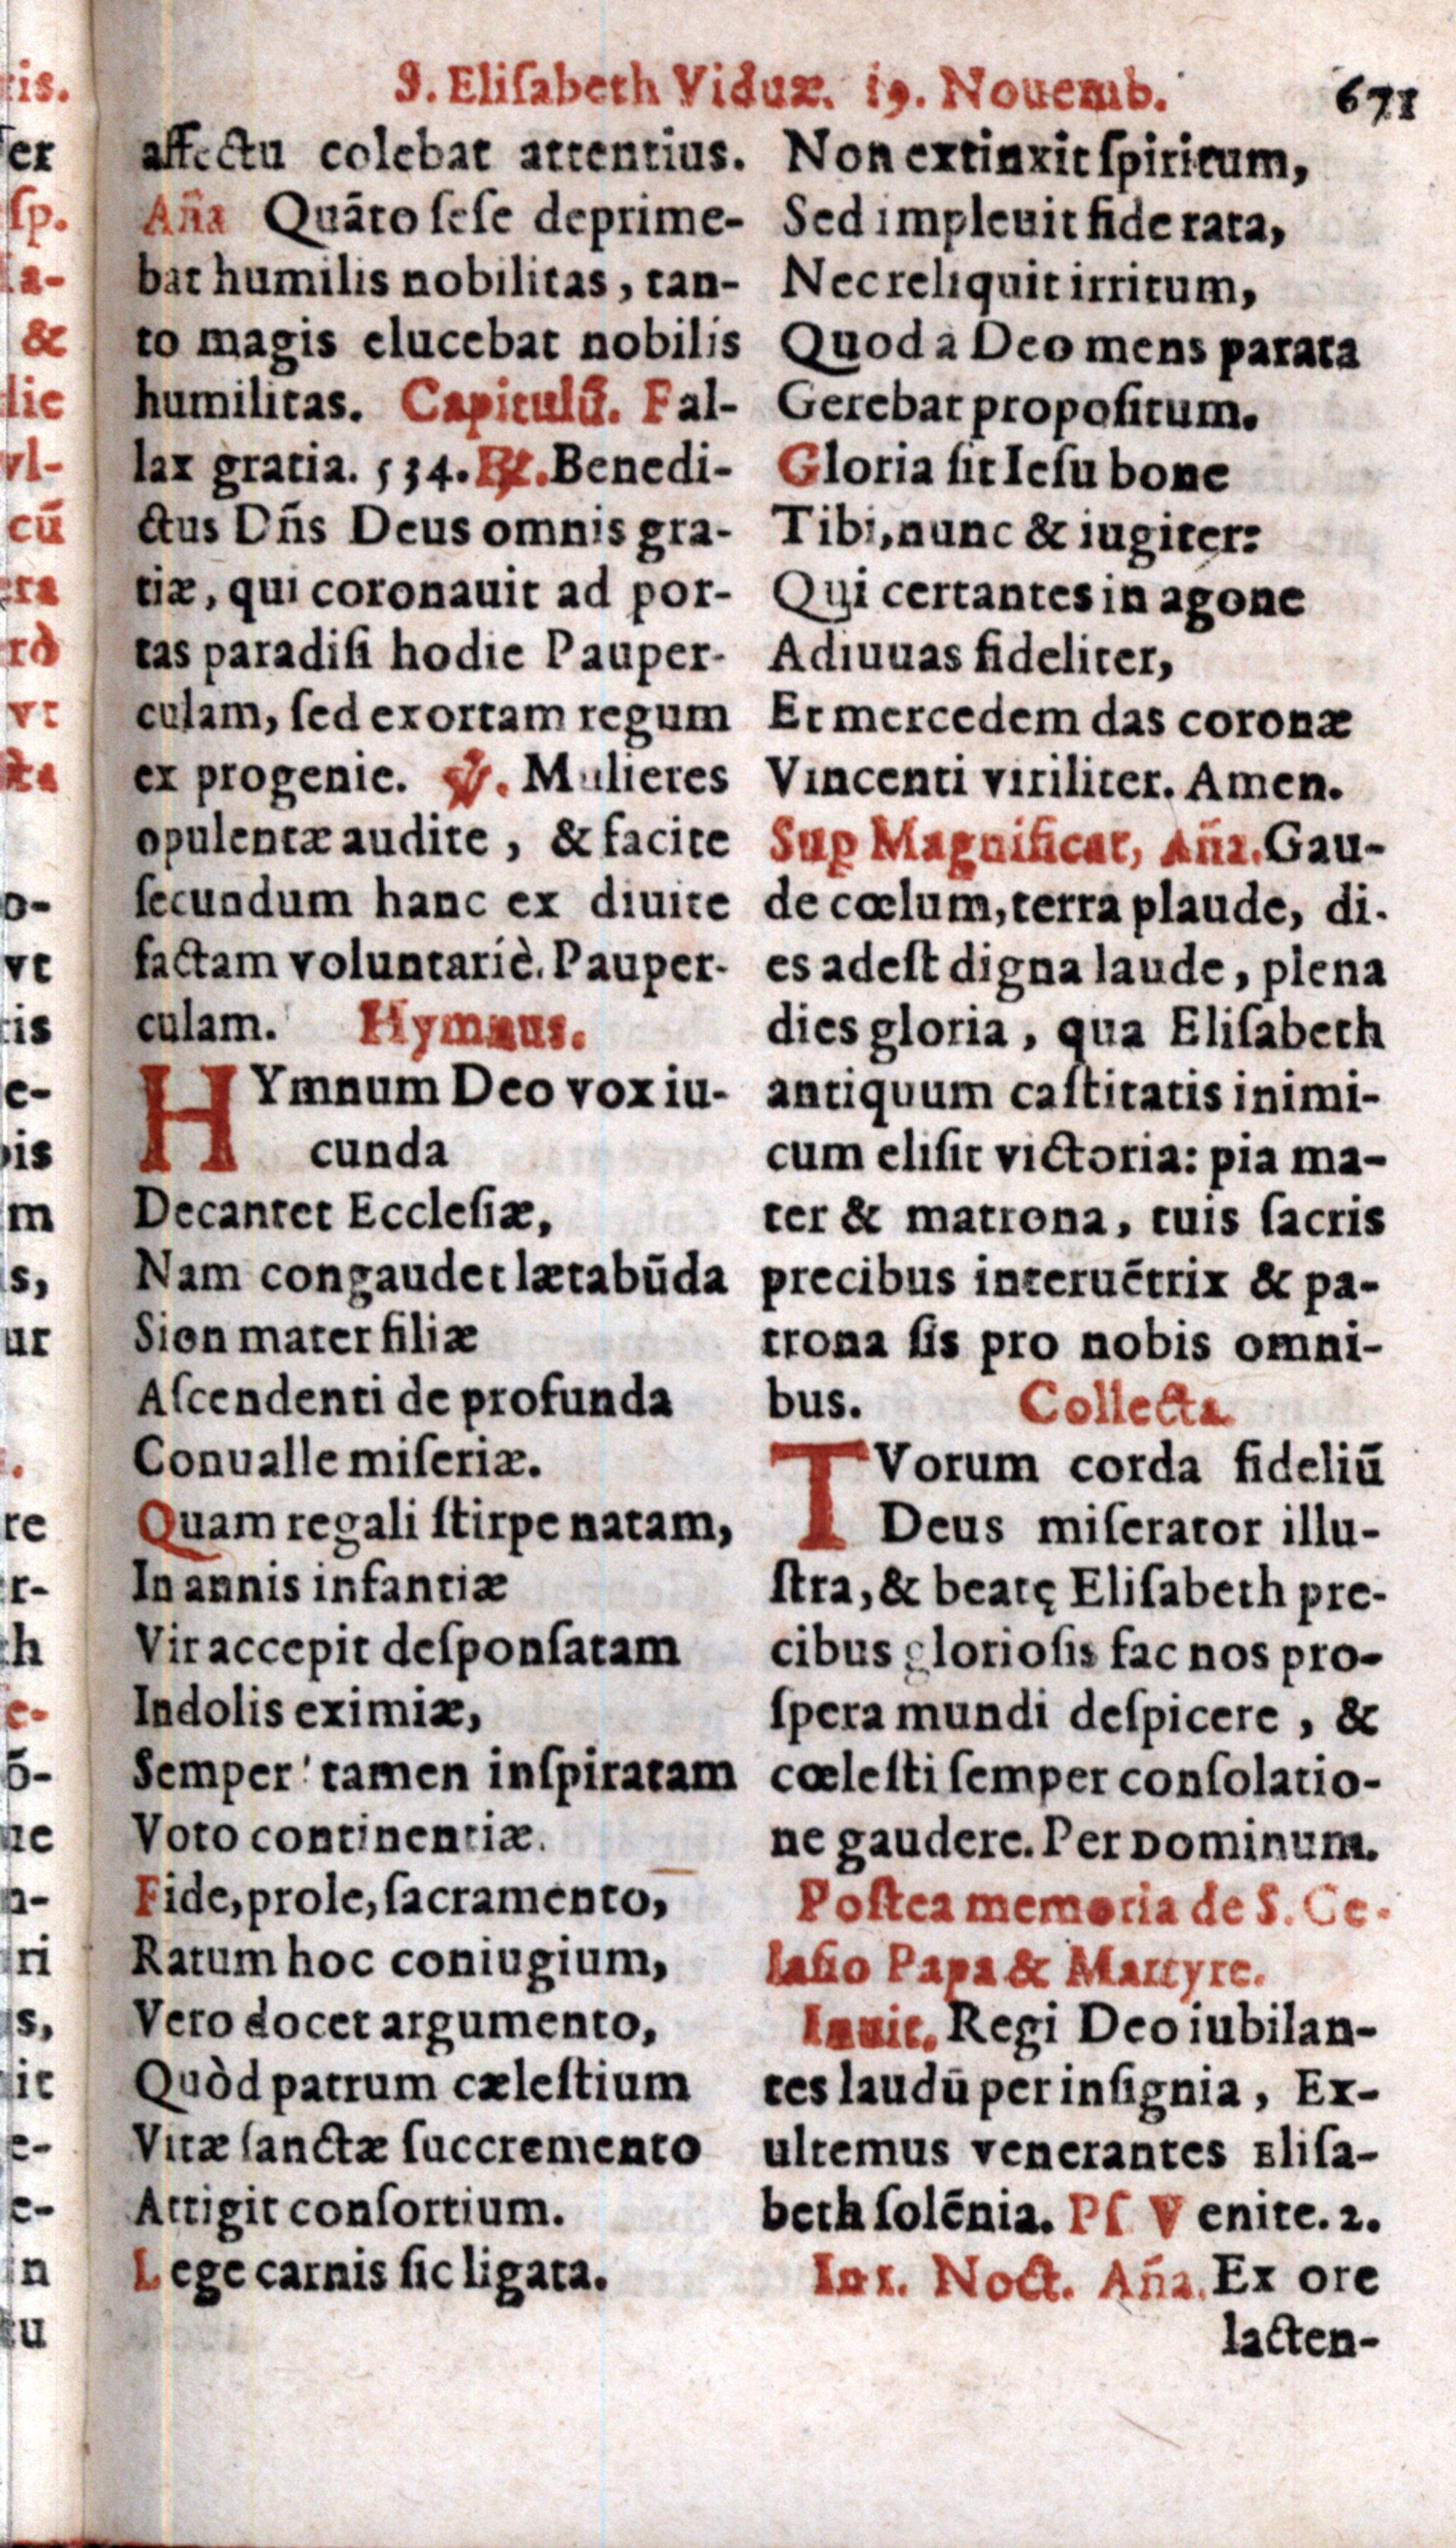 S. Eliſabeth Viduæ. 19. Nouemb. 671
affectu colebat attentius.
Añа Quãto ſeſe deprime-
bat humilis nobilitas, tan-
to magis elucebat nobilis
humilitas. Capitulũ. Fal-
lax gratia. 534. ℟. Benedi-
ctus Dñs Deus omnis gra-
tiæ, qui coronauit ad por-
tas paradiſi hodie Pauper-
culam, ſed exortam regum
ex progenie. ℣. Mulieres
opulentæ audite, & facite
ſecundum hanc ex diuite
factam voluntariè. Pauper-
culam. Hymnus.
HYmnum Deo vox iu-
cunda
Decantet Eccleſiæ,
Nam congaudet lætabũda
Sion mater filiæ
Aſcendenti de profunda
Conualle miſeriæ.
Quam regali ſtirpe natam,
In annis infantiæ
Vir accepit deſponſatam
Indolis eximiæ,
Semper tamen inſpiratam
Voto continentiæ.
Fide, prole, ſacramento,
Ratum hoc coniugium,
Vero docet argumento,
Quòd patrum cæleſtium
Vitæ ſanctæ ſuccremento
Attigit conſortium.
Lege carnis ſic ligata.
Non extinxit ſpiritum,
Sed impleuit fide rata,
Nec reliquit irritum,
Quod a Deo mens parata
Gerebat propoſitum.
Gloria ſit Ieſu bone
Tibi, nunc & iugiter:
Qui certantes in agone
Adiuuas fideliter,
Et mercedem das coronæ
Vincenti viriliter. Amen.
Suꝑ Magnificat, Aña. Gau-
de cœlum, terra plaude, di-
es adeſt digna laude, plena
dies gloria, qua Eliſabeth
antiquum caſtitatis inimi-
cum eliſit victoria: pia ma-
ter & matrona, tuis ſacris
precibus interuẽtrix & pa-
trona ſis pro nobis omni-
bus. Collecta.
TVorum corda fideliũ
Deus miſerator illu-
ſtra, & beatę Eliſabeth pre-
cibus glorioſis fac nos pro-
ſpera mundi deſpicere, &
cœleſti ſemper conſolatio-
ne gaudere. Per Dominum.
Poſtea memoria de S. Ge-
laſio Papa & Martyre.
Inuit. Regi Deo iubilan-
tes laudũ per inſignia, Ex-
ultemus venerantes Eliſa-
beth ſolẽnia. Pſ Venite. 2.
In 1. Noct. Aña. Ex ore
lacten-